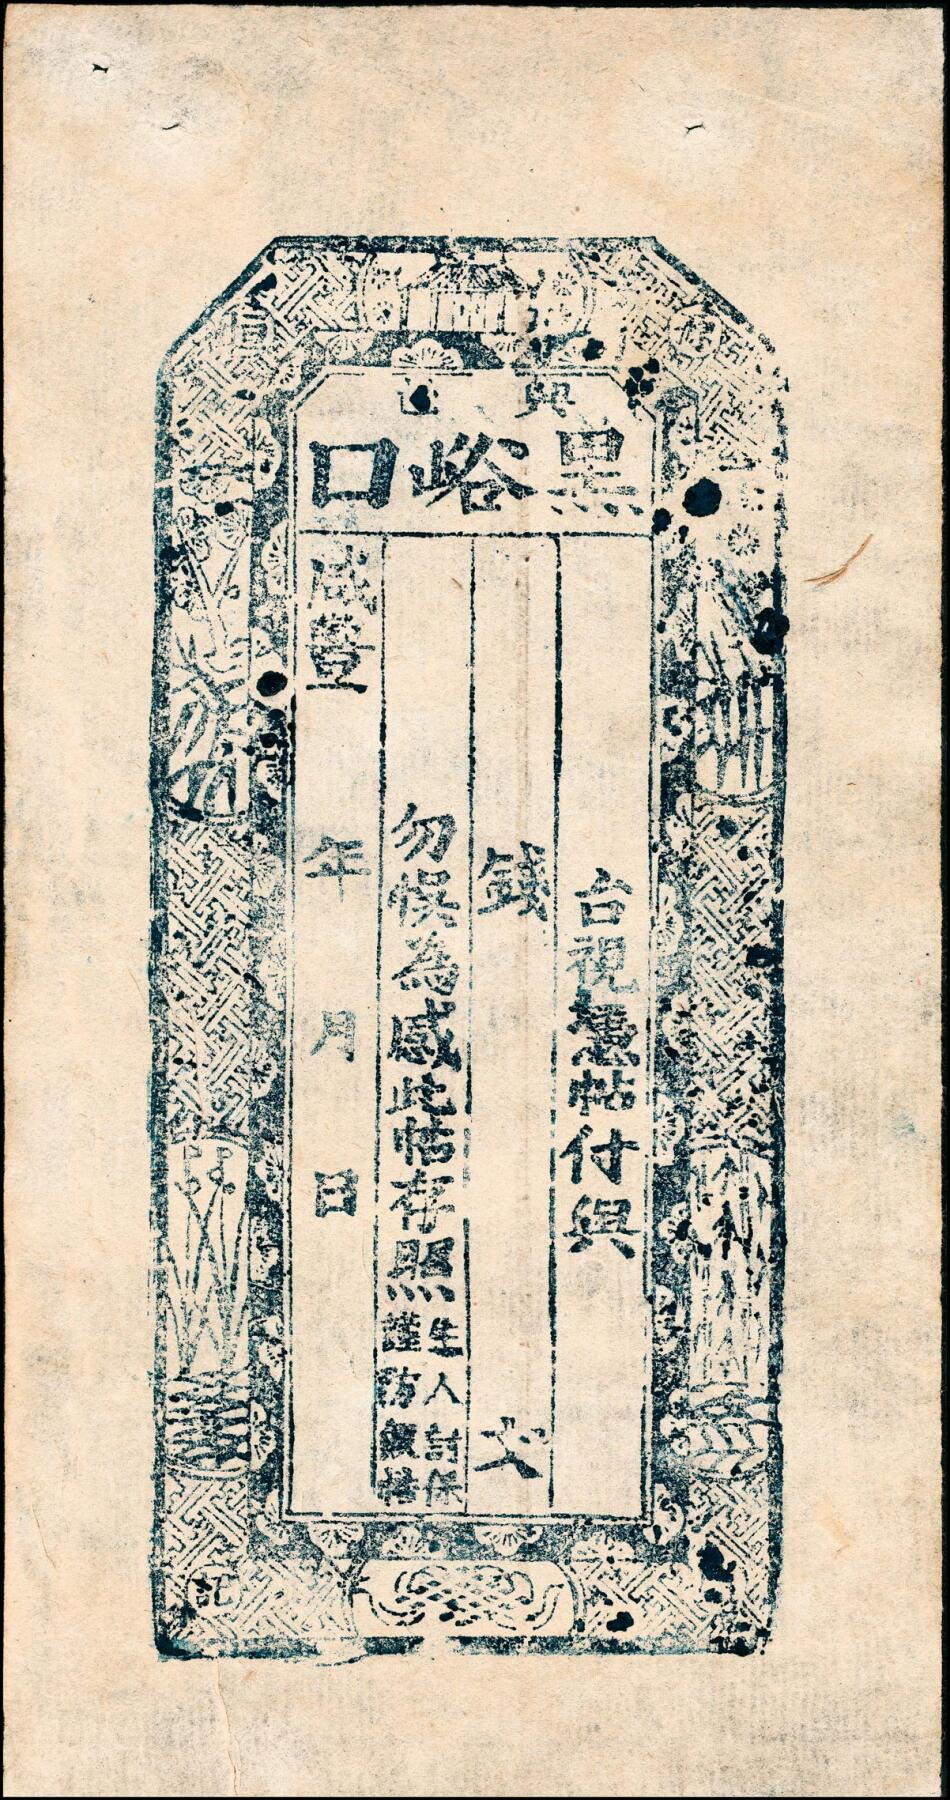 興邑
黑峪口
台視憑帖付興
錢 文
勿悞為感此帖存照
生人討保
謹防假帖
咸豐 年 月 日
記